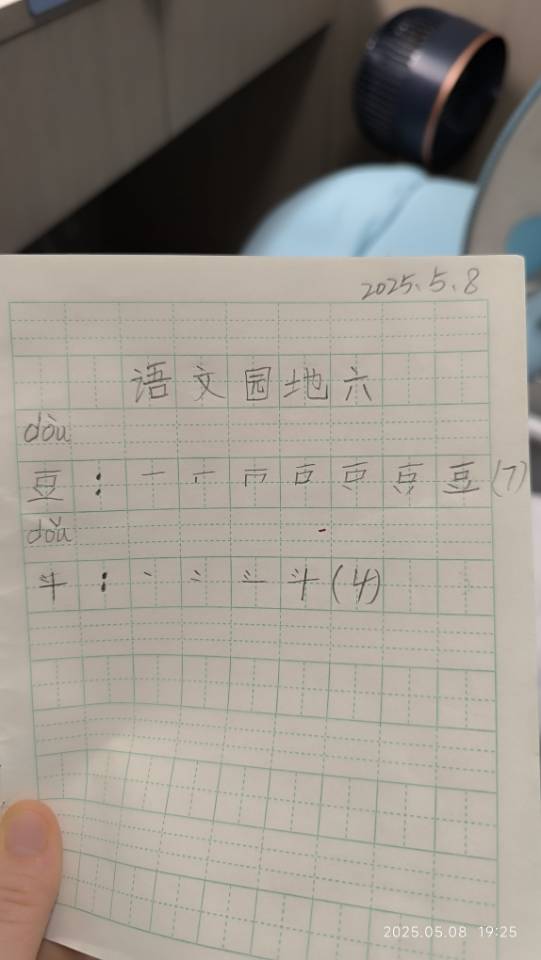 2025.5.8
语文园地六
dòu
豆：一 𠄠 豆(7)
dǒu
斗：丶 斗(4)
2025.05.08 19:25